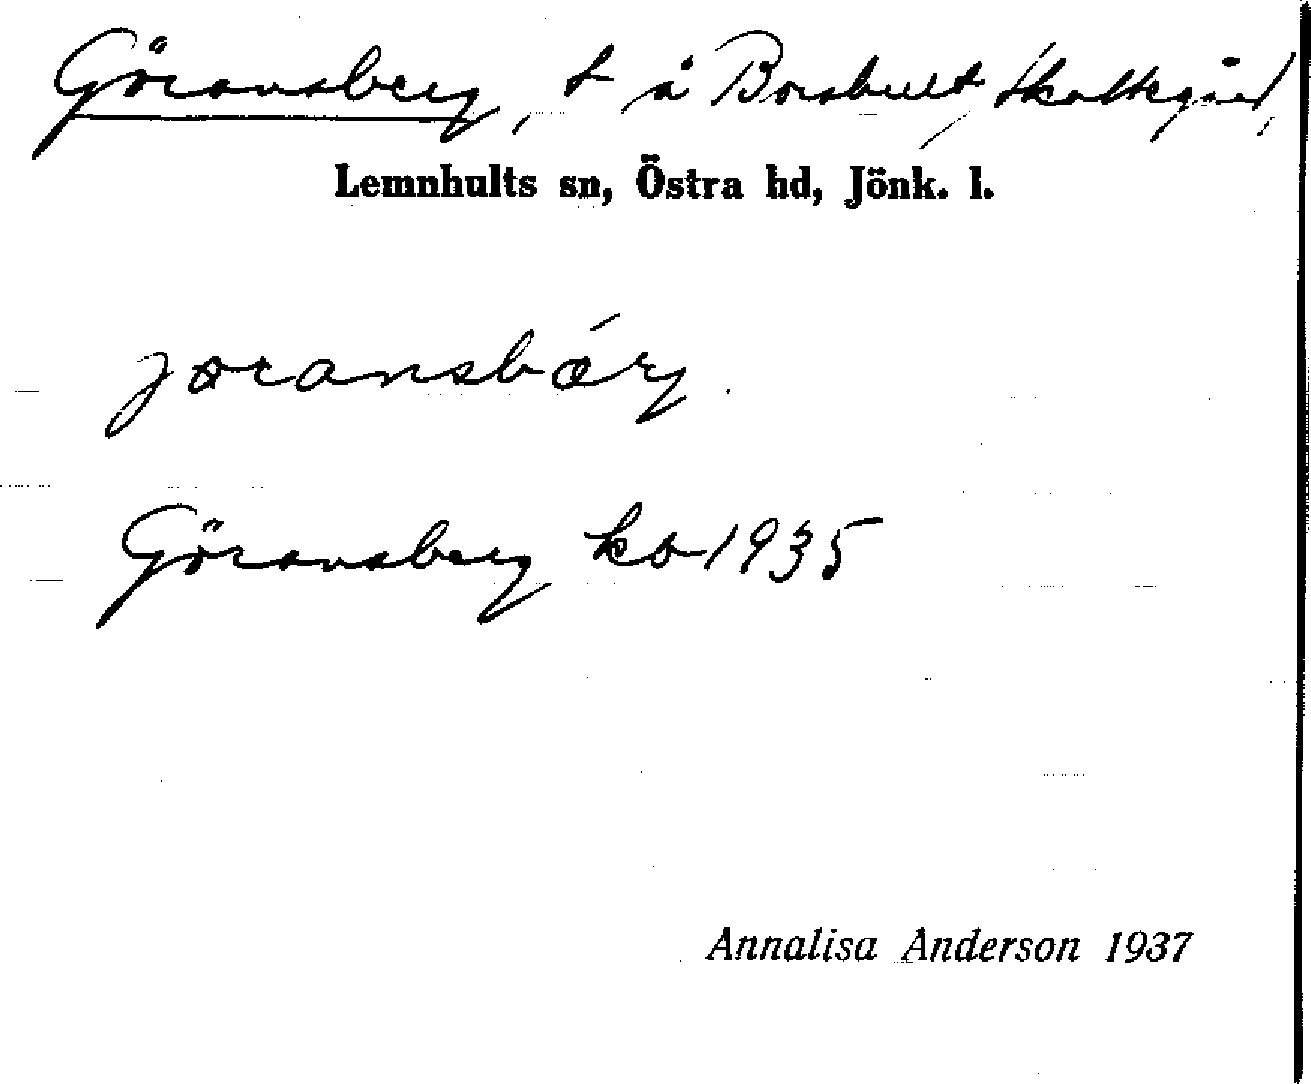 Göransberg, t å Borsbult, Skattegård,
Lemnhults sn, Östra hd, Jönk. l.
jöransbærj.
Göransberg ko 1935
Annalisa Anderson 1937